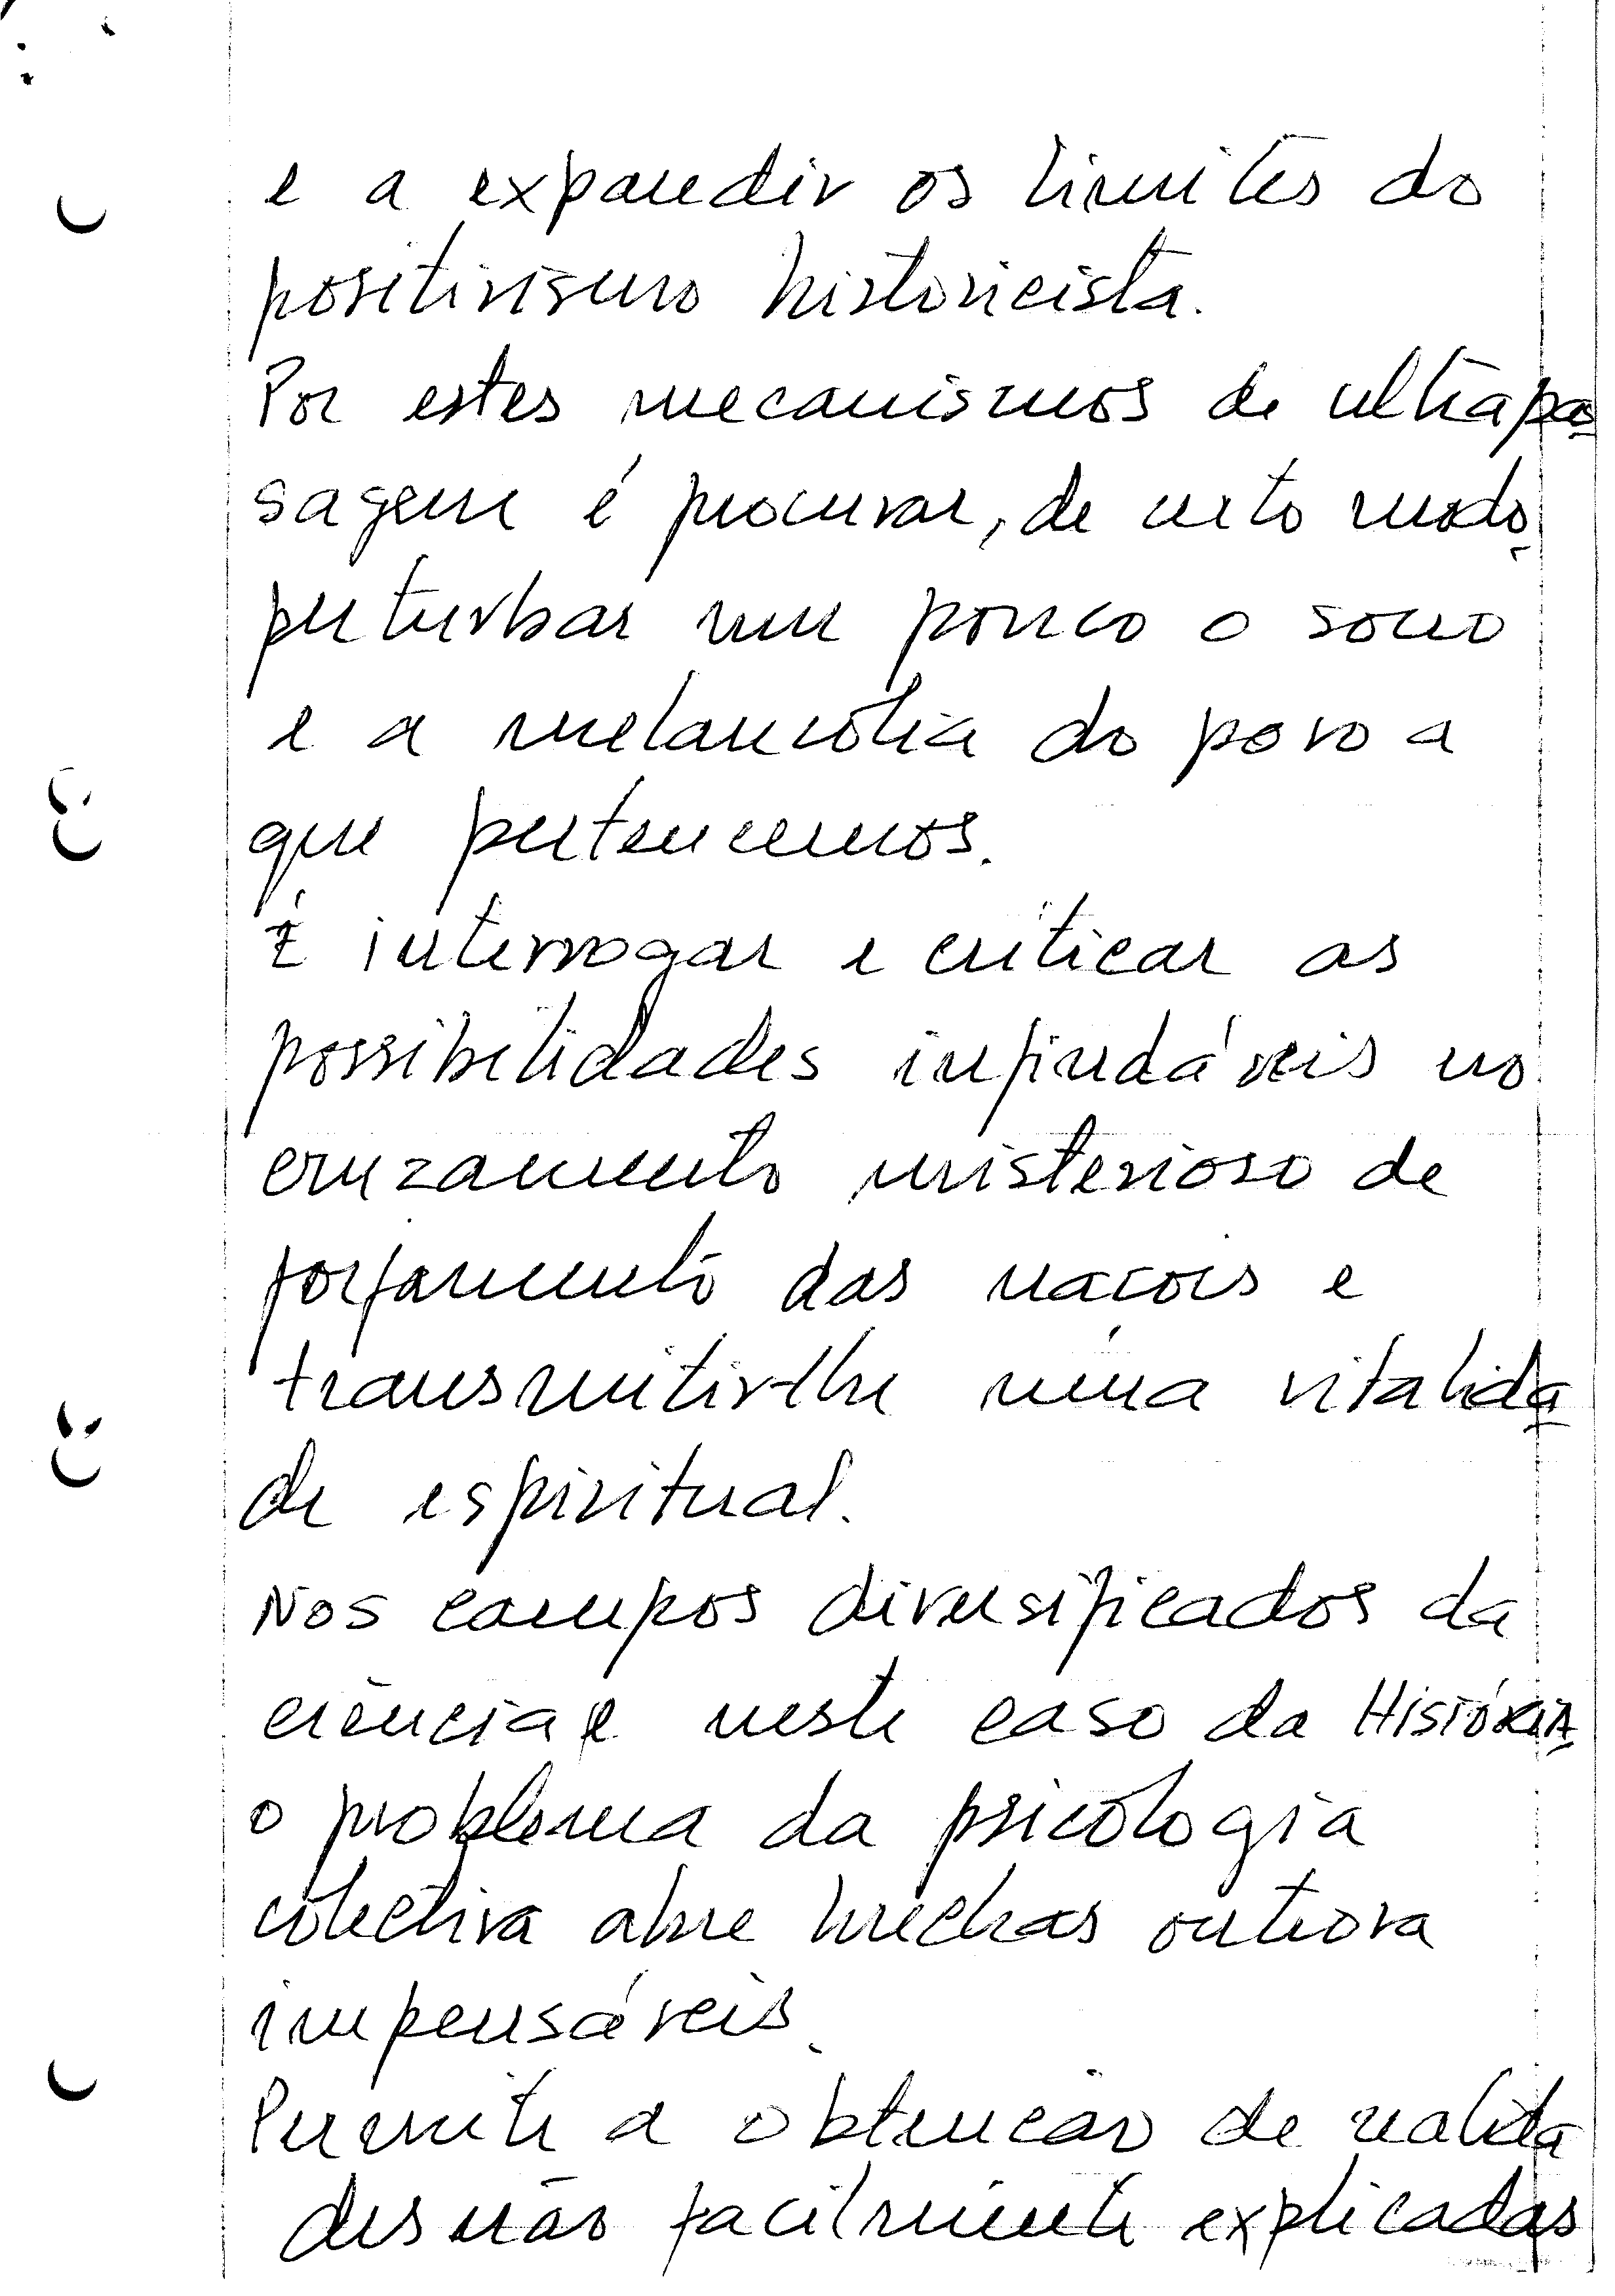 e a expandir os limites do
positivismo historicista.
Por estes mecanismos de ultrapas
sagem é procurar, de certo modo,
perturbar um pouco o sono
e a melancolia do povo a
que pertencemos.
É interrogar e criticar as
possibilidades infindáveis no
cruzamento misterioso de
forjamento das nacões e
transmitir-lhe uma vitalida
de espiritual.
Nos campos diversificados da
ciência e neste caso da História,
o problema da psicologia
colectiva abre brechas outrora
impensáveis.
Permite a obtencão de realida
des não facilmente explicadas